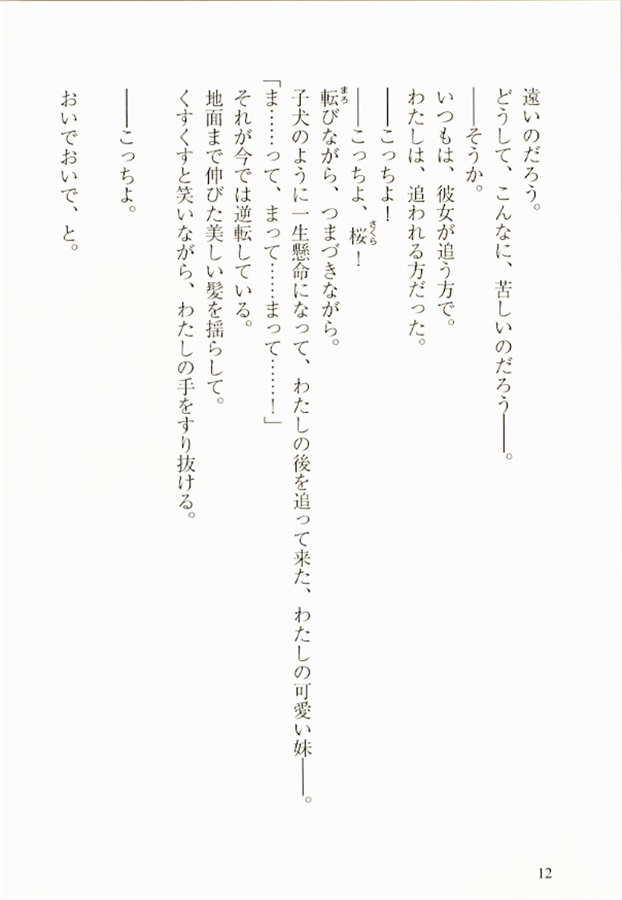 遠いのだろう。
どうして、こんなに、苦しいのだろう――。
――そうか。
いつもは、彼女が追う方で。
わたしは、追われる方だった。
――こっちよ！
――こっちよ、桜！
転びながら、つまづきながら。
子犬のように一生懸命になって、わたしの後を追って来た、わたしの可愛い妹――。
「ま……って、まって……まって……！」
それが今では逆転している。
地面まで伸びた美しい髪を揺らして。
くすくすと笑いながら、わたしの手をすり抜ける。
――こっちよ。
おいでおいで、と。
12